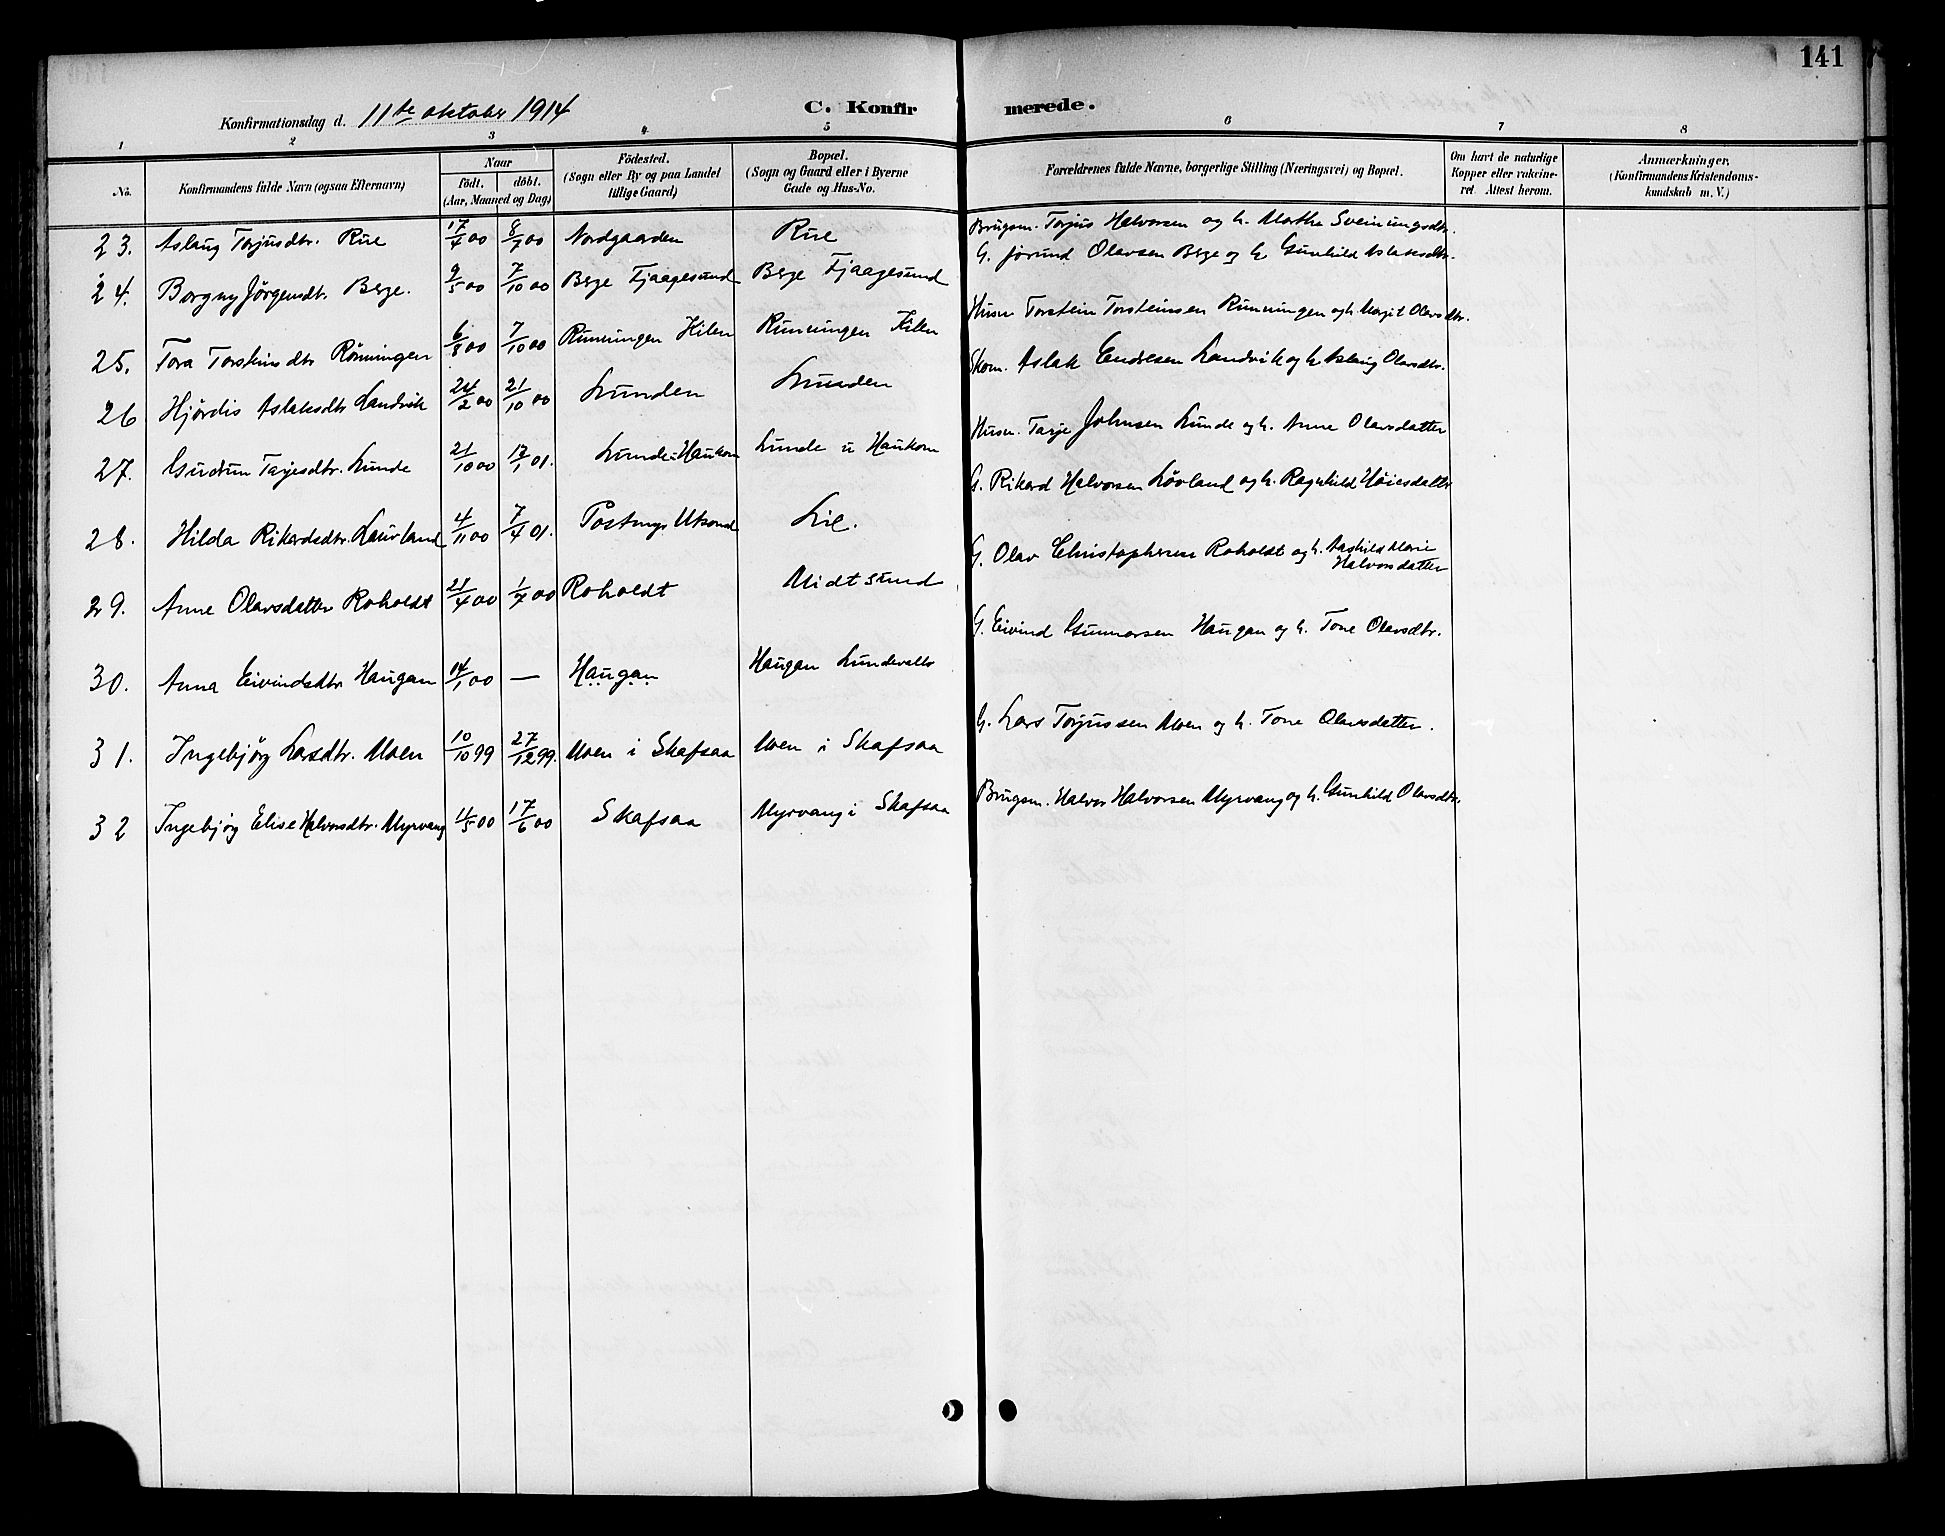 141
Konfirmationsdag d. 11te oktober 1914
C. Konfirmerede.
1 2 3 4 5 6 7 8
No.
Konfirmandens fulde Navn (ogsaa Efternavn)
Naar
födt. döbt.
(Aar, Maaned og Dag)
Födested.
(Sogn eller By og paa Landet
tillige Gaard)
Bopæl.
(Sogn og Gaard eller i Byerne
Gade og Hus-No.
Forældrenes fulde Navne, borgerlige Stilling (Næringsvei) og Bopæl.
Om havt de naturlige
Kopper eller vakcine-
ret. Attest herom.
Anmærkninger.
(Konfirmandens Kristendoms-
kundskab m. V.)
23. Aslaug Torjusdtr. Rue 17/4 00 Nordgaarden Rue Brugsm. Torjus Halvorsen og h. Marthe Sveinungsdtr.
24. Borgny Jörgendtr. Berge. 9/5 00 7/10 00 Berge Fjaagesund Berge Fjaagesund G. Jörund Olavsen Berge og h Gunhild Aslaksdtr.
25. Tora Torsteinsdtr Rönningen 6/8 00 7/10 00 Runningen Kilen Runningen Kilen Husm Torstein Torsteinsen Runningen og h. Margit Olavsdtr.
26 Hjördis Aslaksdtr Landvik 24/2 00 21/10 00 Lunden Lunden Skom. Aslak Endresen Landvik og h. Aslaug Olavsdtr.
27. Gudrun Tarjesdtr. Lunde 21/10 00 13/1 01. Lunde u Haukom Lunde u Haukom Husm. Tarje Johnsen Lunde og h. Anne Olavsdatter
28. Hilda Rikardsdtr. Laurland 4/11 00 7/4 01. Lie. G. Rikard Halvorsen Lövland og h. Ragnhild Höiesdatter
29. Anne Olavsdatter Roholdt 21/4 00 Roholdt Midtsund G. Olav Christophersen Roholdt og h. Aashild Marie
Halvorsdatter
30. Anna Eivindsdtr Haugan 14/1 00 — Haugan Haugan Lundevall G. Eivind Gunnarsen Haugan og h. Tone Olavsdtr.
31. Ingebjörg Larsdtr. Moen 10/10 99 27/12 99. Moen i Skafsaa Moen i Skafsaa G. Lars Torjussen Moen og h. Tone Olavsdatter.
32 Ingebjörg Elise Halvorsdtr. Myrvang 00 17/6 00 Skafsaa Myrvang i Skafsaa Brugsm. Halvor Halvorsen Myrvang og h. Gunhild Olavsdtr.